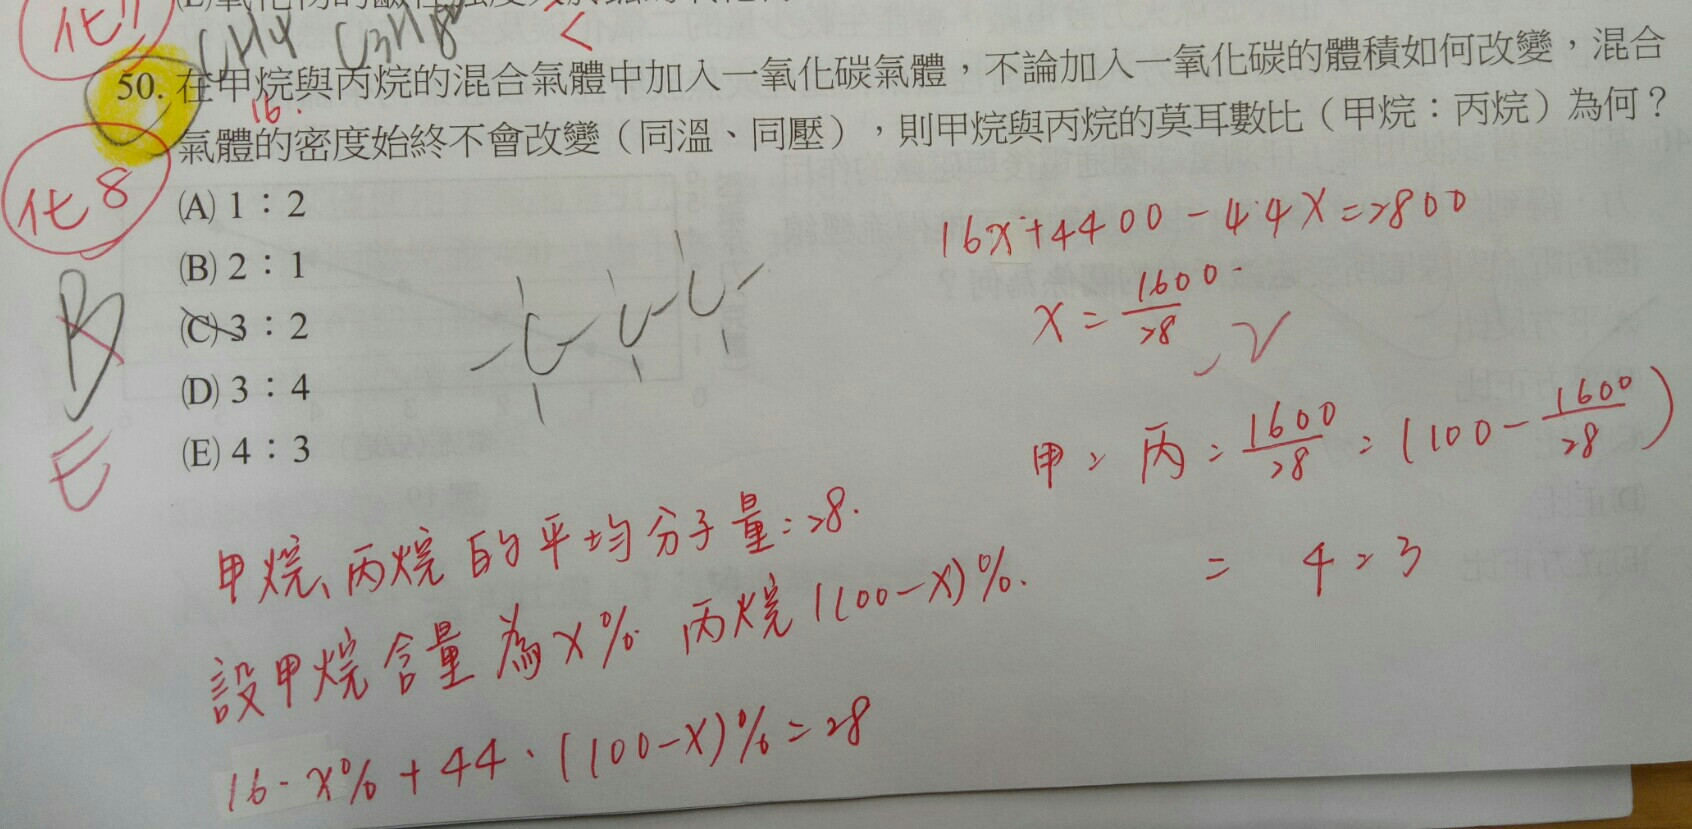 化11
CH4 C3H8
<
50. 在甲烷與丙烷的混合氣體中加入一氧化碳氣體，不論加入一氧化碳的體積如何改變，混合
16.
氣體的密度始終不會改變（同溫、同壓），則甲烷與丙烷的莫耳數比（甲烷：丙烷）為何？
化8
(A) 1：2
(B) 2：1
(C) 3：2
(D) 3：4
(E) 4：3
B
E
16x+4400-44x=2800
x=1600/28
甲：丙=1600/28：(100-1600/28)
= 4：3
甲烷、丙烷的平均分子量=28.
設甲烷含量為x% 丙烷(100-x)%.
16·x%+44·(100-x)%=28